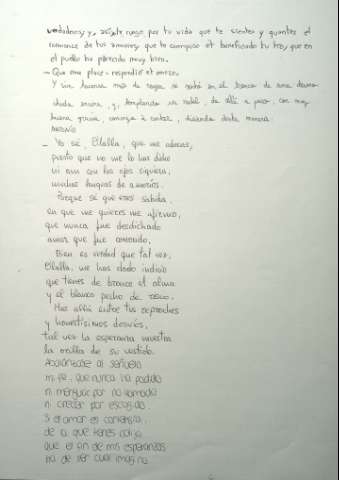 verdadero; y, así, te ruego por tu vida que te sientes y cantes el
romance de tus amores, que te compuso el beneficiado tu tío, que en
el pueblo ha parecido muy bien.
- Que me place - respondió el mozo.
Y sin hacerse más de rogar se sentó en el tronco de una desmo-
chada encina, y, templando su rabel, de allí a poco, con muy
buena gracia, comenzó a cantar, diciendo desta manera:
ANTONIO
- Yo sé, Olalla, que me adoras,
puesto que no me lo has dicho
ni aun con los ojos siquiera,
mudas lenguas de amoríos.
Porque sé que eres sabida,
en que me quieres me afirmo,
que nunca fue desdichado
amor que fue conocido.
Bien es verdad que tal vez,
Olalla, me has dado indicio
que tienes de bronce el alma
y el blanco pecho de risco.
Mas allá entre tus reproches
y honestísimos desvíos,
tal vez la esperanza muestra
la orilla de su vestido.
Abalánzase al señuelo
mi fe, que nunca ha podido
ni menguar por no llamado
ni crecer por escogido.
Si el amor es cortesía,
de la que tienes colijo
que el fin de mis esperanzas
ha de ser cual imagino.